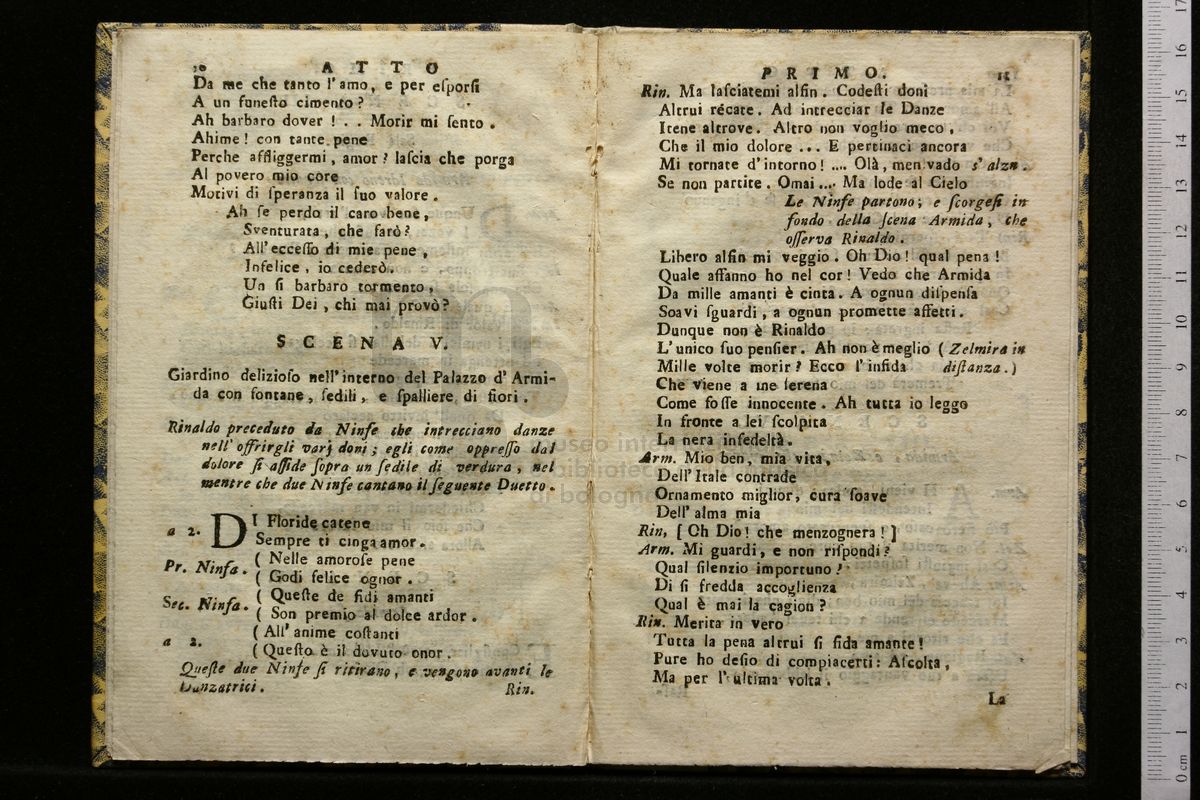 10 ATTO
Da me che tanto l'amo, e per eſporſi
A un funeſto cimento?
Ah barbaro dover! . . Morir mi ſento.
Ahime! con tante pene
Perche affliggermi, amor? laſcia che porga
Al povero mio core
Motivi di ſperanza il ſuo valore.
Ah ſe perdo il caro bene,
Sventurata, che farò?
All'ecceſſo di mie pene,
Infelice, io cederò.
Un ſi barbaro tormento,
Giuſti Dei, chi mai provò?
SCENA V.
Giardino delizioſo nell'interno del Palazzo d'Armi-
da con fontane, ſedili, e ſpalliere di fiori.
Rinaldo preceduto da Ninfe che intrecciano danze
nell'offrirgli varj doni; egli come oppreſſo dal
dolore ſi aſſide ſopra un ſedile di verdura, nel
mentre che due Ninfe cantano il ſeguente Duetto.
a 2. DI Floride catene
Sempre ti cinga amor.
Pr. Ninfa. ( Nelle amoroſe pene
( Godi felice ognor.
Sec. Ninfa. ( Queſte de fidi amanti
( Son premio al dolce ardor.
a 2. ( All'anime coſtanti
( Queſto è il dovuto onor.
Queſte due Ninfe ſi ritirano, e vengono avanti le
Danzatrici. Rin.
PRIMO. 11
Rin. Ma laſciatemi alfin. Codeſti doni
Altrui récate. Ad intrecciar le Danze
Itene altrove. Altro non voglio meco,
Che il mio dolore ... E pertinaci ancora
Mi tornate d'intorno! .... Olà, men vado s'alza.
Se non partite. Omai .... Ma lode al Cielo
Le Ninfe partono; e ſcorgeſi in
fondo della ſcena Armida, che
oſſerva Rinaldo.
Libero alfin mi veggio. Oh Dio! qual pena!
Quale affanno ho nel cor! Vedo che Armida
Da mille amanti è cinta. A ognun diſpenſa
Soavi ſguardi, a ognun promette affetti.
Dunque non è Rinaldo
L'unico ſuo penſier. Ah non è meglio ( Zelmira in
Mille volte morir? Ecco l'infida diſtanza. )
Che viene a me ſerena
Come foſſe innocente. Ah tutta io leggo
In fronte a lei ſcolpita
La nera infedeltà.
Arm. Mio ben, mia vita,
Dell'Itale contrade
Ornamento miglior, cura ſoave
Dell'alma mia
Rin, [ Oh Dio! che menzognera! ]
Arm. Mi guardi, e non riſpondi?
Qual ſilenzio importuno!
Di ſi fredda accoglienza
Qual è mai la cagion?
Rin. Merita in vero
Tutta la pena altrui ſi fida amante!
Pure ho deſio di compiacerti: Aſcolta,
Ma per l'ultima volta.
La